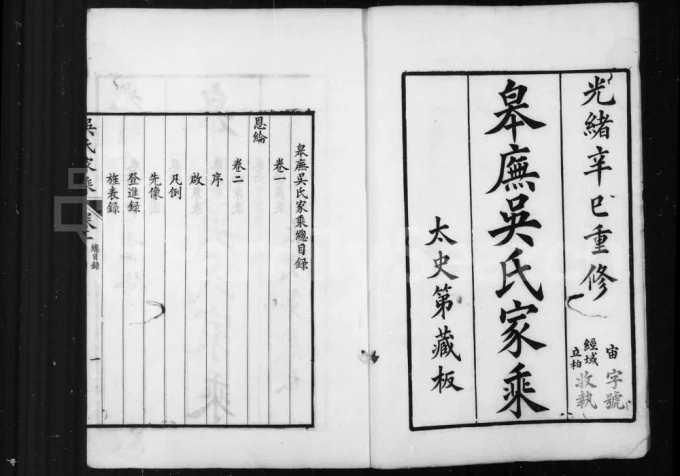 光緒辛巳重修
宙字號
經域
立柏
收執
皋廡吳氏家乘
太史第藏板
皋廡吳氏家乘總目錄
卷一
恩綸
卷二
序
啟
凡例
先像
登進錄
旌表錄
吳氏家乘
卷一
總目錄
一